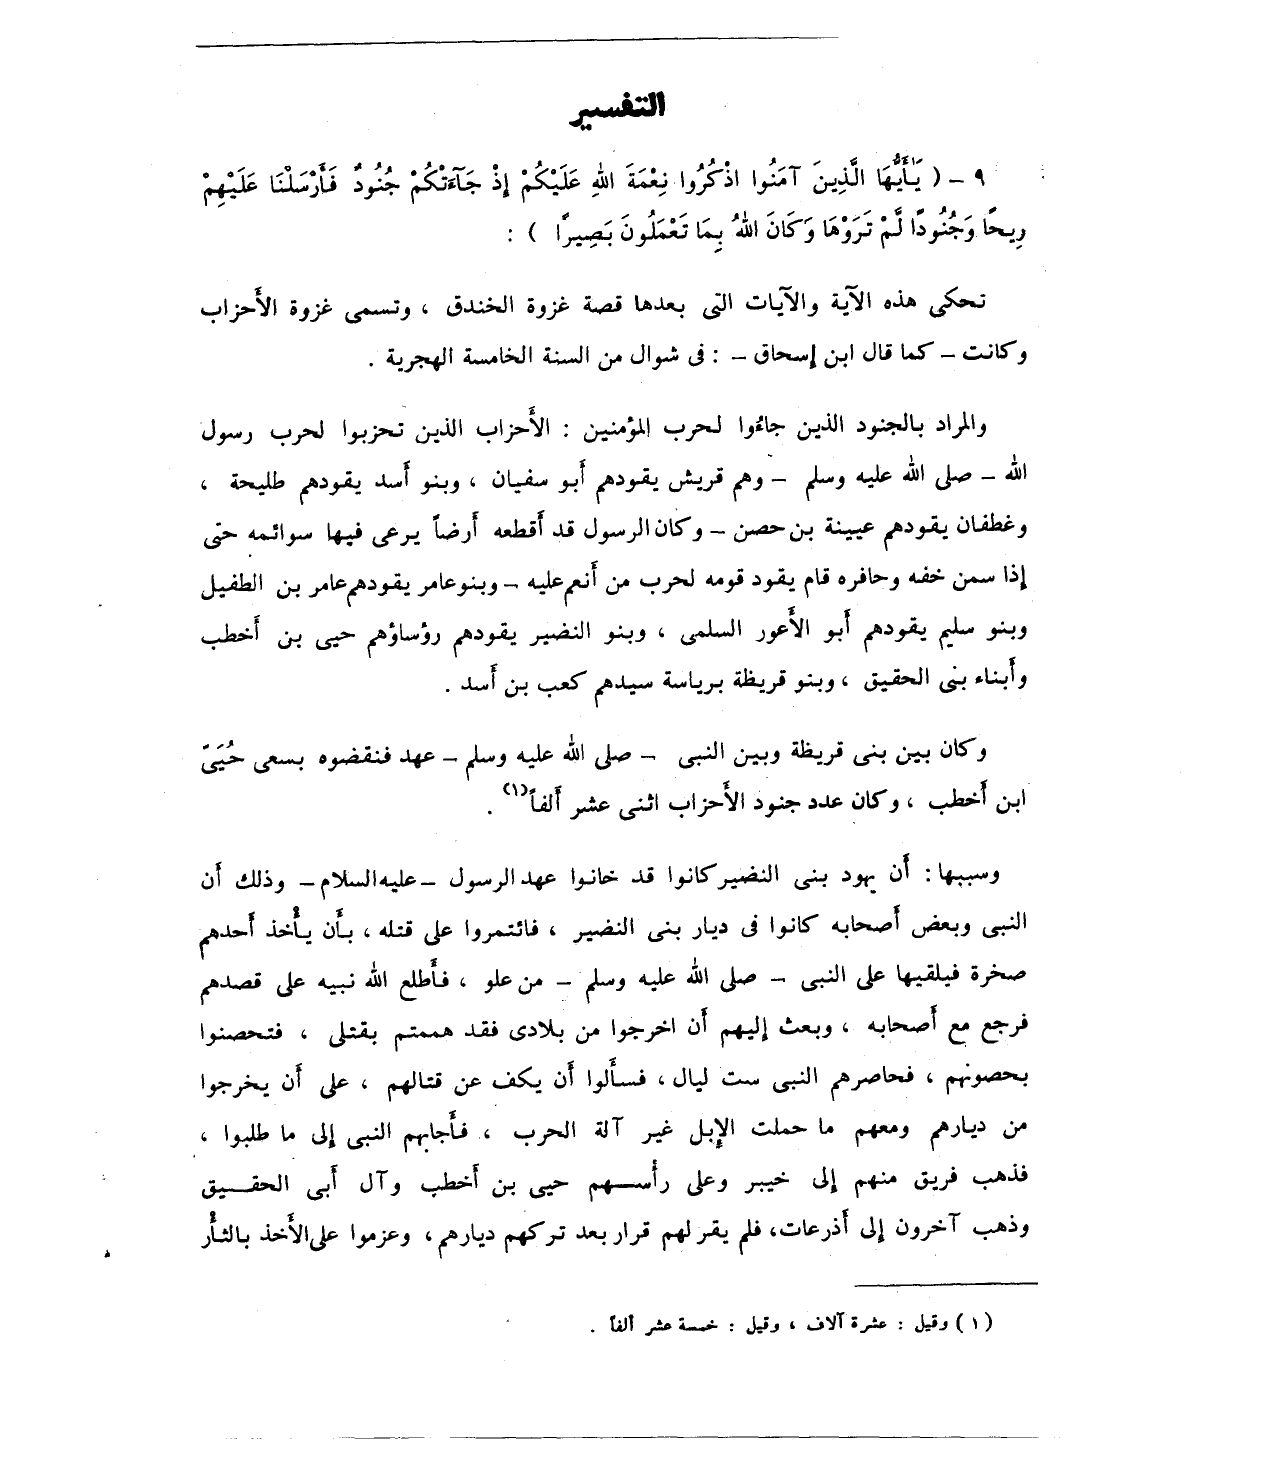 التفسير
٩ ـ ( يَٰأَيُّهَا الَّذِينَ آمَنُوا اذْكُرُوا نِعْمَةَ اللهِ عَلَيْكُمْ إِذْ جَآءَتْكُمْ جُنُودٌ فَأَرْسَلْنَا عَلَيْهِمْ
رِيحًا وَجُنُودًا لَّمْ تَرَوْهَا وَكَانَ اللهُ بِمَا تَعْمَلُونَ بَصِيرًا ) :
تحكى هذه الآية والآيات التى بعدها قصة غزوة الخندق ، وتسمى غزوة الأَحزاب
وكانت ـ كما قال ابن إسحاق ـ : فى شوال من السنة الخامسة الهجرية .
والمراد بالجنود الذين جاءُوا لحرب المؤمنين : الأَحزاب الذين تحزبوا لحرب رسول
الله ـ صلى الله عليه وسلم ـ وهم قريش يقودهم أَبو سفيان ، وبنو أَسد يقودهم طليحة ،
وغطفان يقودهم عيينة بن حصن ـ وكان الرسول قد أَقطعه أَرضاً يرعى فيها سوائمه حتى
إذا سمن خفه وحافره قام يقود قومه لحرب من أَنعم عليه ـ وبنو عامر يقودهم عامر بن الطفيل
وبنو سليم يقودهم أَبو الأَعور السلمى ، وبنو النضير يقودهم رؤساؤهم حيى بن أَخطب
وأَبناء بنى الحقيق ، وبنو قريظة برياسة سيدهم كعب بن أَسد .
وكان بين بنى قريظة وبين النبى ـ صلى الله عليه وسلم ـ عهد فنقضوه بسعى حُيَىّ
ابن أَخطب ، وكان عدد جنود الأَحزاب اثنى عشر أَلفاً(١) .
وسببها : أَن يهود بنى النضير كانوا قد خانوا عهد الرسول ـ عليه السلام ـ وذلك أَن
النبى وبعض أَصحابه كانوا فى ديار بنى النضير ، فائتمروا على قتله ، بأَن يأْخذ أَحدهم
صخرة فيلقيها على النبى ـ صلى الله عليه وسلم ـ من علو ، فأَطلع الله نبيه على قصدهم
فرجع مع أَصحابه ، وبعث إليهم أَن اخرجوا من بلادى فقد هممتم بقتلى ، فتحصنوا
بحصونهم ، فحاصرهم النبى ست ليال ، فسأَلوا أَن يكف عن قتالهم ، على أَن يخرجوا
من ديارهم ومعهم ما حملت الإبل غير آلة الحرب ، فأَجابهم النبى إلى ما طلبوا ،
فذهب فريق منهم إلى خيبر وعلى رأْسهم حيى بن أَخطب وآل أَبى الحقيق
وذهب آخرون إلى أَذرعات، فلم يقر لهم قرار بعد تركهم ديارهم ، وعزموا على الأَخذ بالثأْر
(١) وقيل : عشرة آلاف ، وقيل : خمسة عشر ألفاً .